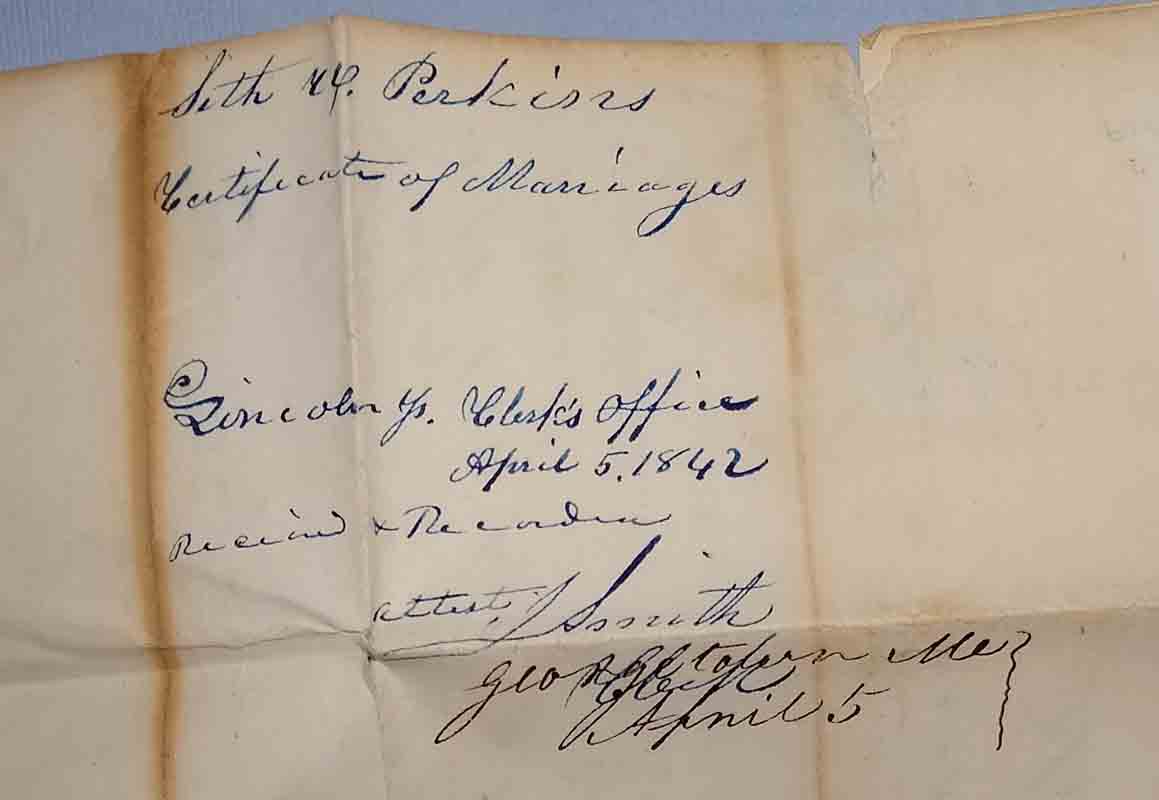 Seth H. Perkins
Certificate of Marriages
Lincoln ss. Clerk's Office
April 5, 1842
Received & Recorded
attest, J Smith
Clerk
Georgetown Me
April 5